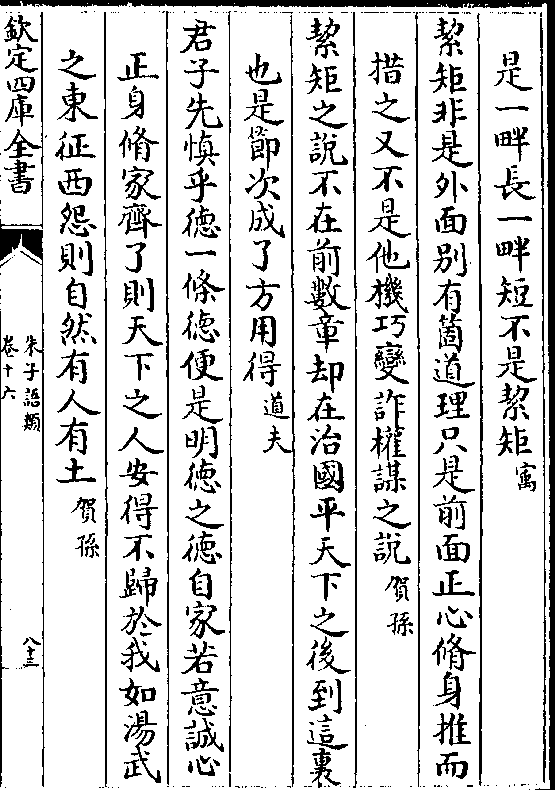 是一畔長一畔短不是絜矩㝢
絜矩非是外面别有箇道理只是前面正心脩身推而
措之又不是他機巧變詐權謀之説賀孫
絜矩之說不在前數章却在治國平天下之後到這裏
也是節次成了方用得道夫
君子先慎乎徳一條徳便是明徳之徳自家若意誠心
正身脩家齊了則天下之人安得不歸於我如湯武
之東征西怨則自然有人有土賀孫
欽定四庫全書
朱子語類
卷十六
八十三